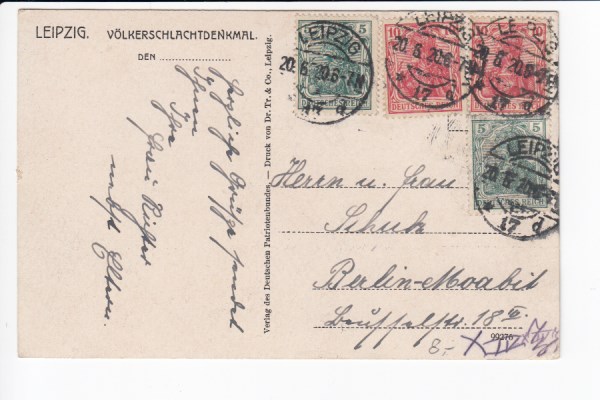 LEIPZIG. VÖLKERSCHLACHTDENKMAL.
DEN
Herzliche Grüße sendet
Ihnen
Ihre
Frau Richter
nebst Eltern.
Verlag des Deutschen Patriotenbundes. – Druck von Dr. Tr. & Co., Leipzig.
5
10
10
5
DEUTSCHES REICH
DEUTSCHES REICH
DEUTSCHES REICH
DEUTSCHES REICH
LEIPZIG
20.6.20.6-7N
17 d
LEIPZIG
20.6.20.6-7N
* 17 d
LEIPZIG
20.6.20.6-7N
17 d
Herrn u. Frau
Schuk
Berlin-Moabit
18
99276
8.-